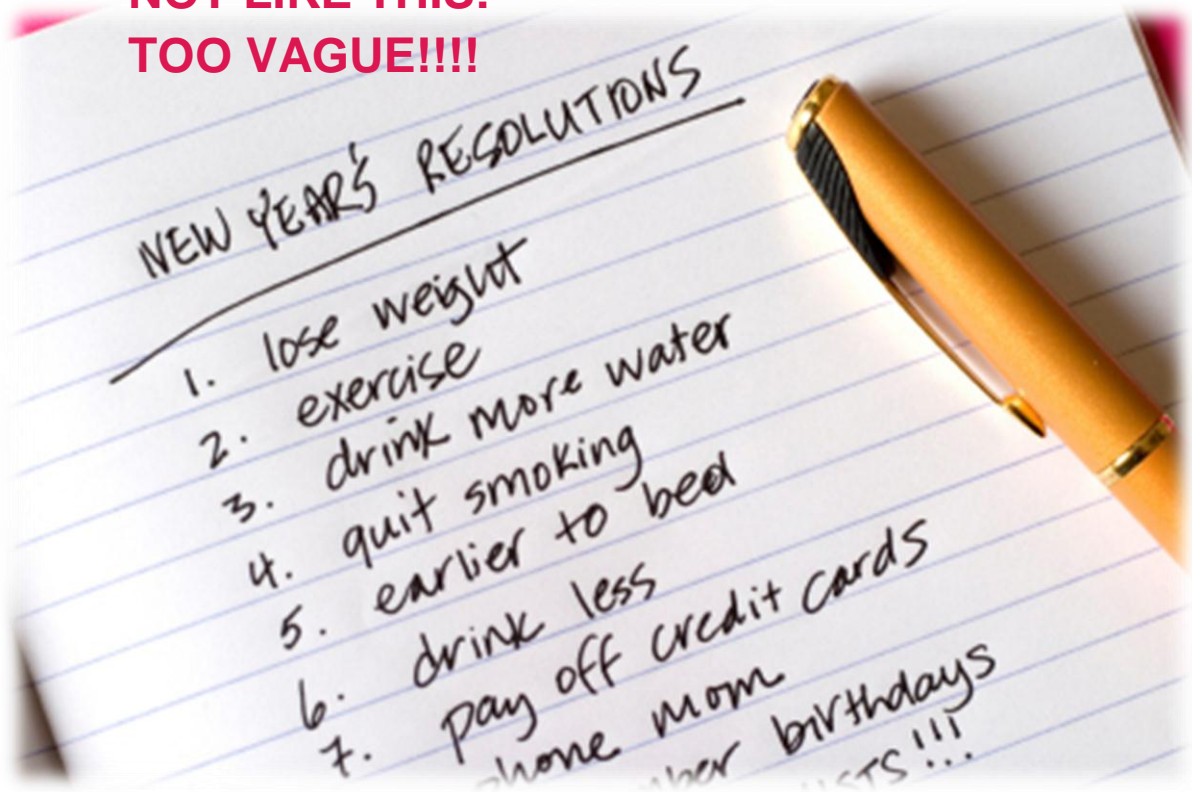 NOT LIKE THIS:
TOO VAGUE!!!!
NEW YEAR'S RESOLUTIONS
1. lose weight
2. exercise
3. drink more water
4. quit smoking
5. earlier to bed
6. drink less
7. pay off credit cards
phone mom
birthdays
!!!